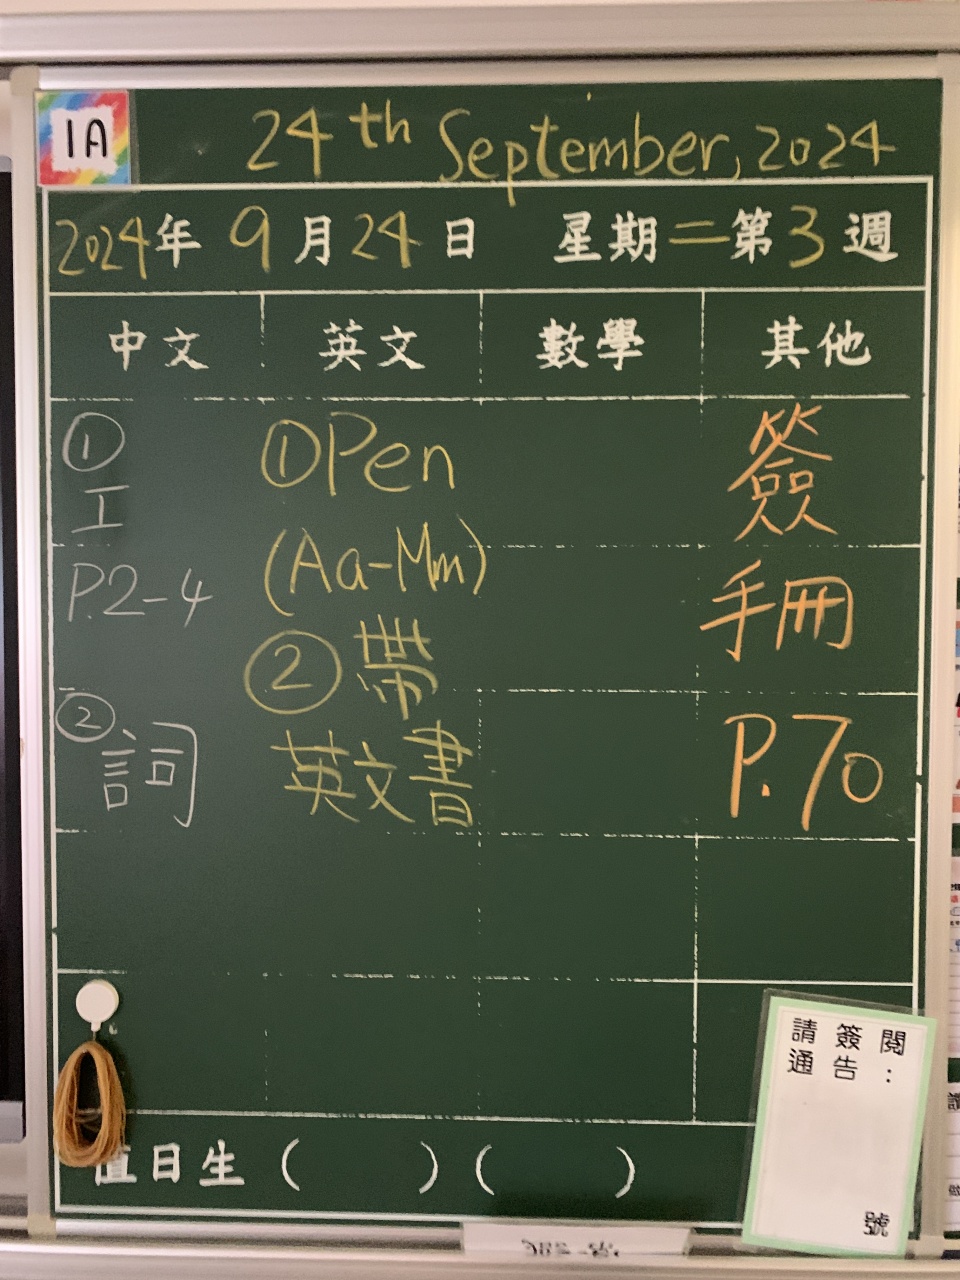 1A
24th September, 2024
2024年 9月24日 星期二第3週
中文 英文 數學 其他
① ①Pen 簽
工
(Aa-Mm)
P.2-4 手冊
② ②帶
詞 英文書 P.70
請簽閱
通告:
號
值日生( )( )